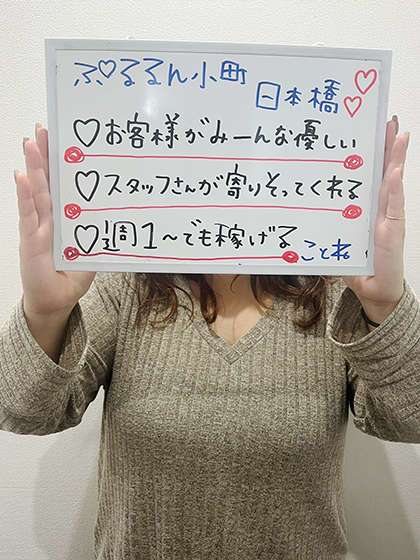 ぷるるん小町
日本橋♡♡
♡お客様がみーんな優しい
♡スタッフさんが寄りそってくれる
♡週1~でも稼げる
ことね